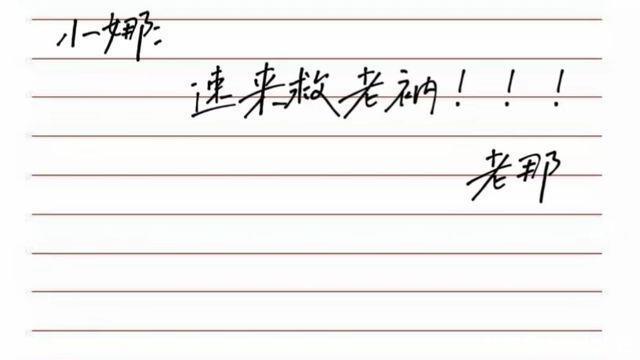 小娜:
速来救老衲！！！
老那